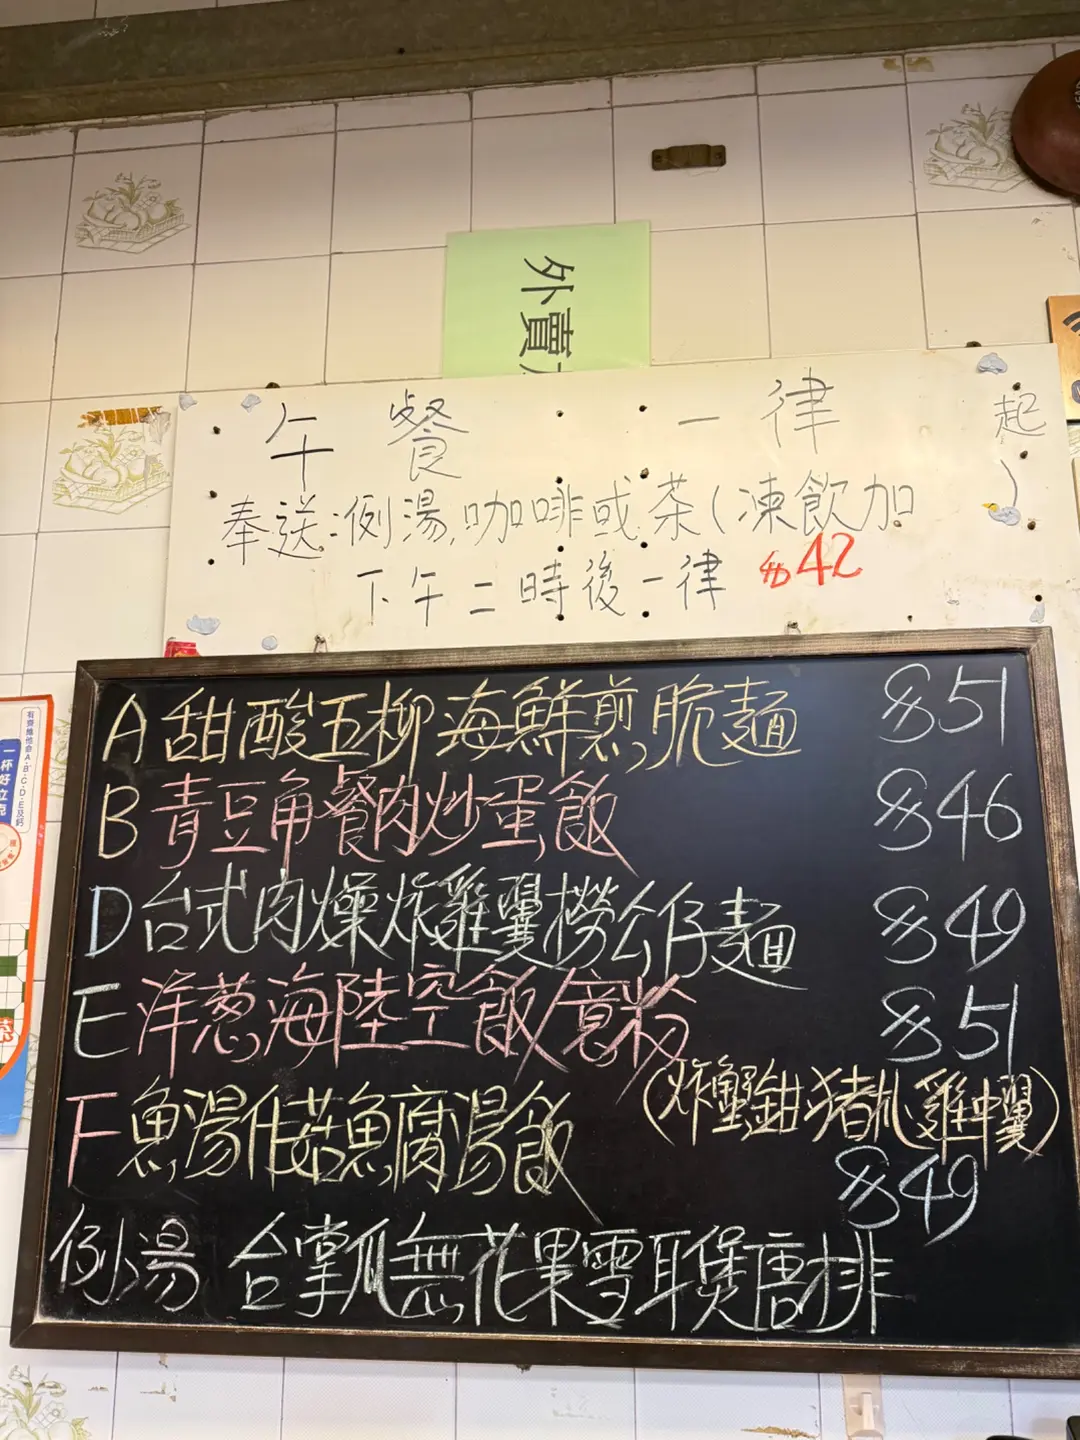 外賣
午餐 一律 起
奉送:例湯,咖啡或茶(凍飲加 )
下午二時後一律 $42
A 甜酸五柳海鮮煎脆麵 $51
B 青豆角餐肉炒蛋飯 $46
D 台式肉燥炸雞翼撈公仔麵 $49
E 洋葱海陸空飯/意粉 $51
(炸蟹鉗 猪扒 雞中翼)
F 魚湯什菇魚腐湯飯 $49
例湯 合掌瓜無花果雪耳煲唐排
一杯好立克